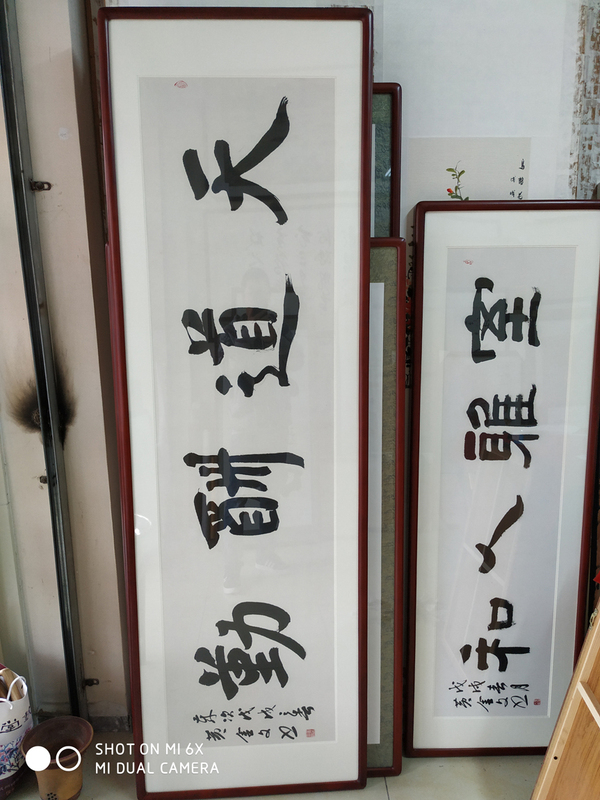 天道酬勤
次戊戌
室雅人和
戊戌春月
SHOT ON MI 6X
MI DUAL CAMERA